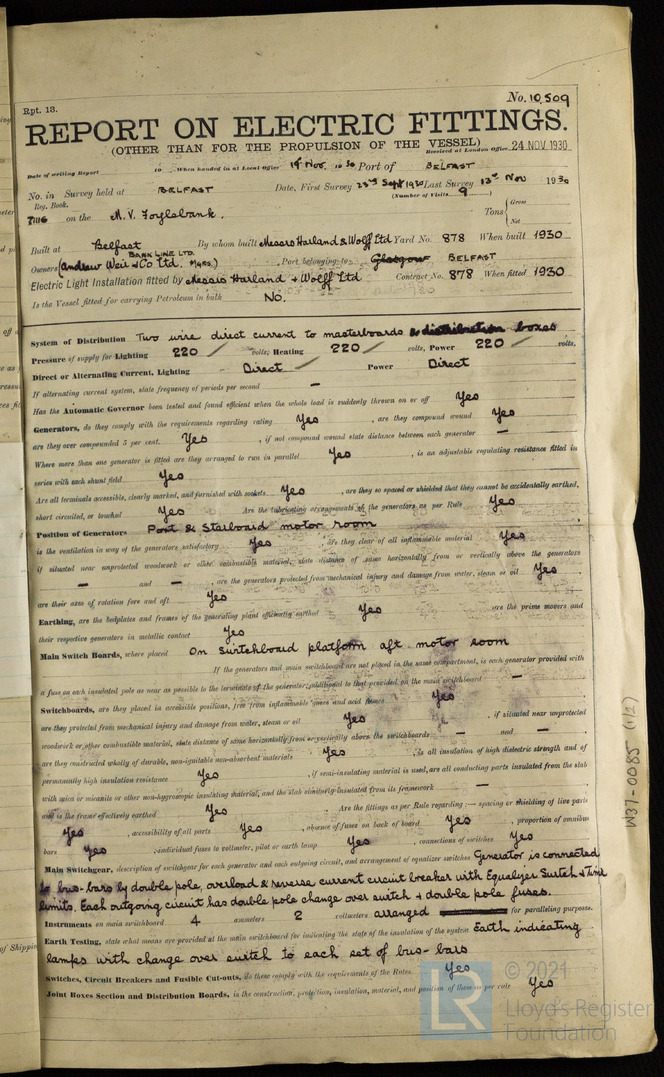 No. 10,509
Rpt. 13.
REPORT ON ELECTRIC FITTINGS.
(OTHER THAN FOR THE PROPULSION OF THE VESSEL)
Received at London Office 24 NOV 1930
Date of writing Report 19 When handed in at Local Office 19th Nov. 1930 Port of BELFAST
No. in Survey held at BELFAST Date, First Survey 23rd Sept 1930 Last Survey 13th Nov 1930
Reg. Book. (Number of Visits 9)
on the M.V. Foylebank. Tons { Gross Net
Built at Belfast By whom built Messrs Harland & Wolff Ltd Yard No. 878 When built 1930
BANK LINE LTD.
Owners (Andrew Weir & Co Ltd. Mgrs.) Port belonging to Glasgow BELFAST
Electric Light Installation fitted by Messrs Harland & Wolff Ltd Contract No. 878 When fitted 1930
Is the Vessel fitted for carrying Petroleum in bulk No.
System of Distribution Two wire direct current to masterboards & distribution boxes
Pressure of supply for Lighting 220 volts, Heating 220 volts, Power 220 volts,
Direct or Alternating Current, Lighting Direct Power Direct
If alternating current system, state frequency of periods per second —
Has the Automatic Governor been tested and found efficient when the whole load is suddenly thrown on or off Yes
Generators, do they comply with the requirements regarding rating Yes , are they compound wound Yes
are they over compounded 5 per cent. Yes , if not compound wound state distance between each generator —
Where more than one generator is fitted are they arranged to run in parallel Yes , is an adjustable regulating resistance fitted in
series with each shunt field Yes
Are all terminals accessible, clearly marked, and furnished with sockets Yes , are they so spaced or shielded that they cannot be accidentally earthed,
short circuited, or touched Yes Are the lubricating arrangements of the generators as per Rule Yes
Position of Generators Port & Starboard motor room
is the ventilation in way of the generators satisfactory Yes , are they clear of all inflammable material Yes
if situated near unprotected woodwork or other combustible material, state distance of same horizontally from or vertically above the generators
— and — , are the generators protected from mechanical injury and damage from water, steam or oil Yes
are their axes of rotation fore and aft Yes
Earthing, are the bedplates and frames of the generating plant efficiently earthed Yes are the prime movers and
their respective generators in metallic contact Yes
Main Switch Boards, where placed On switchboard platform aft motor room
If the generators and main switchboard are not placed in the same compartment, is each generator provided with
a fuse on each insulated pole as near as possible to the terminals of the generator, additional to that provided on the main switchboard —
Switchboards, are they placed in accessible positions, free from inflammable gases and acid fumes Yes
are they protected from mechanical injury and damage from water, steam or oil Yes , if situated near unprotected
woodwork or other combustible material, state distance of same horizontally from or vertically above the switchboards — and —
are they constructed wholly of durable, non-ignitable non-absorbent materials Yes , is all insulation of high dielectric strength and of
permanently high insulation resistance Yes , if semi-insulating material is used, are all conducting parts insulated from the slab
with mica or micanite or other non-hygroscopic insulating material, and the slab similarly insulated from its framework —
and is the frame effectively earthed Yes . Are the fittings as per Rule regarding:— spacing or shielding of live parts
Yes , accessibility of all parts Yes , absence of fuses on back of board Yes , proportion of omnibus
bars Yes , individual fuses to voltmeter, pilot or earth lamp Yes , connections of switches Yes
Main Switchgear, description of switchgear for each generator and each outgoing circuit, and arrangement of equalizer switches Generator is connected
to bus-bars by double pole, overload & reverse current circuit breaker with Equalizer Switch & Time
limits. Each outgoing circuit has double pole change over switch & double pole fuses.
Instruments on main switchboard 4 ammeters 2 voltmeters arranged for paralleling purposes.
Earth Testing, state what means are provided at the main switchboard for indicating the state of the insulation of the system Earth indicating
lamps with change over switch to each set of bus-bars
Switches, Circuit Breakers and Fusible Cut-outs, do these comply with the requirements of the Rules Yes
Joint Boxes Section and Distribution Boards, is the construction, protection, insulation, material, and position of these as per rule Yes
W37-0085 (1/2)
LR
© 2021
Lloyd's Register
Foundation